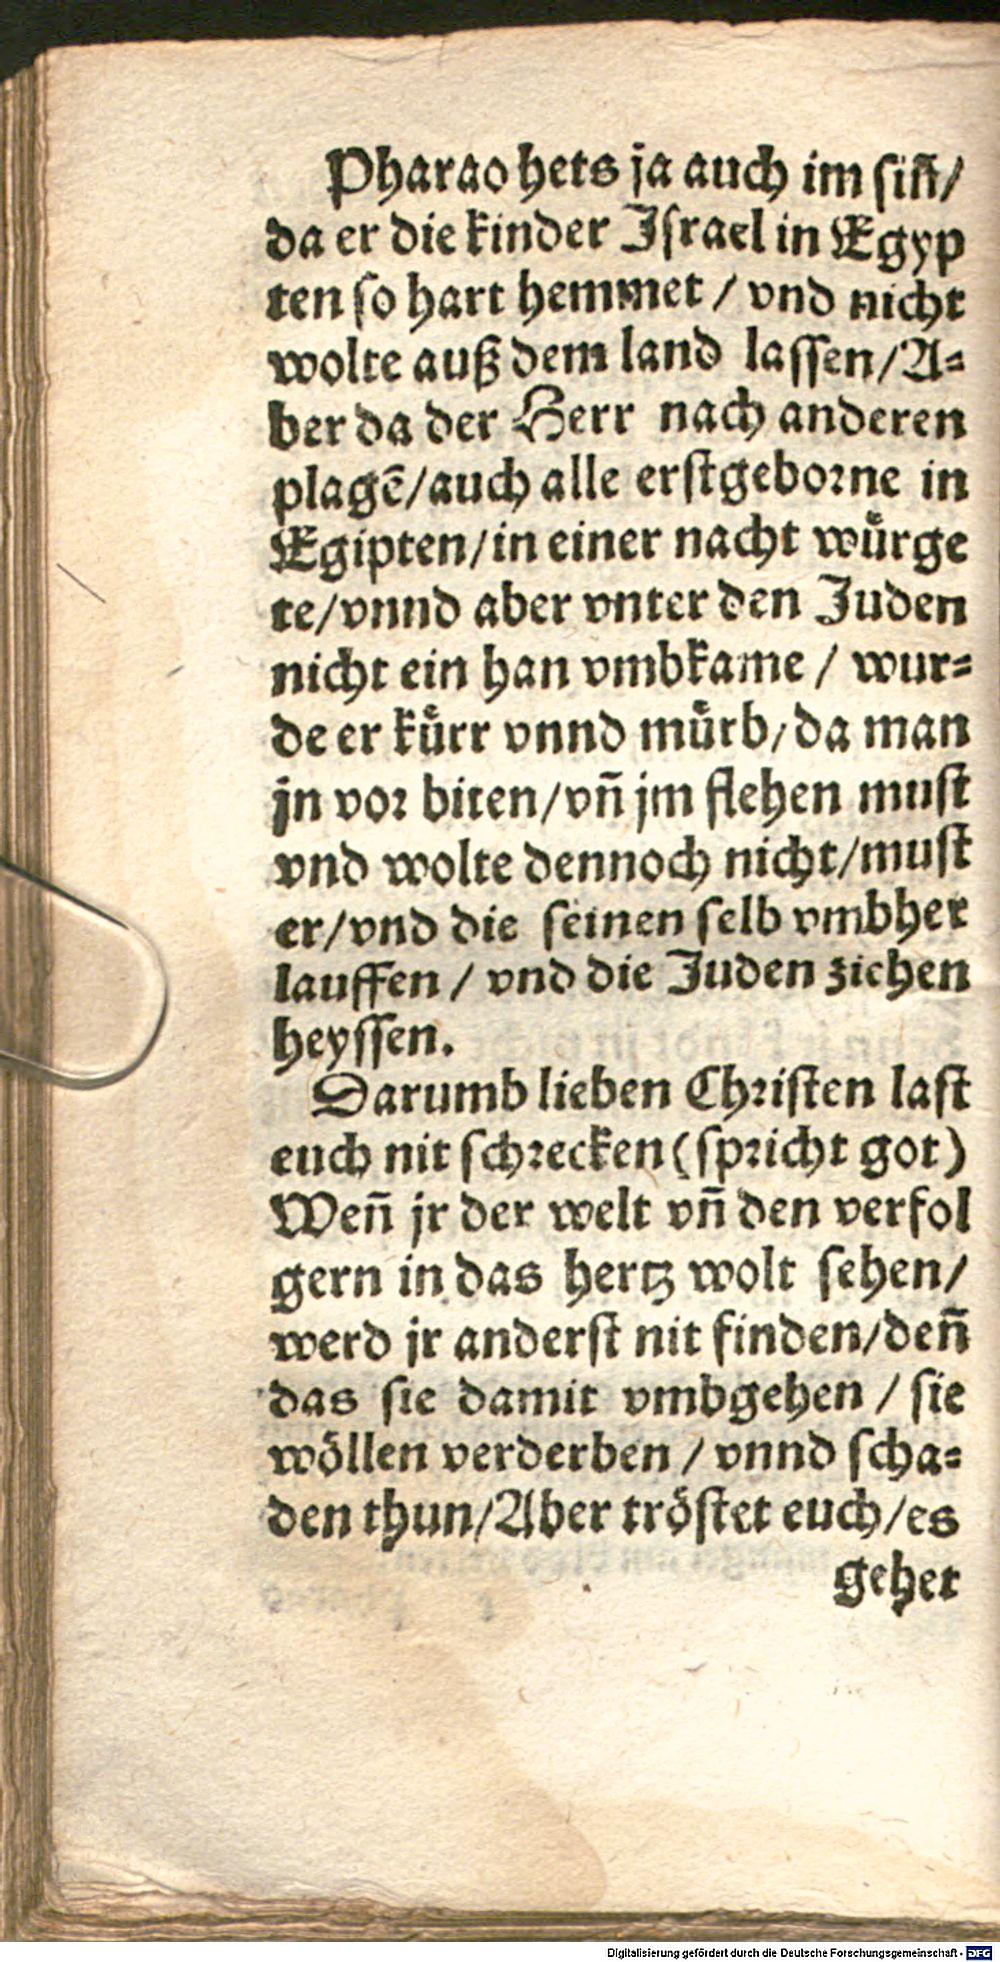 Pharao hets ja auch im siñ/
da er die kinder Israel in Egyp
ten so hart hemmet / vnd nicht
wolte auß dem land lassen/A⸗
ber da der Herr nach anderen
plagẽ/auch alle erstgeborne in
Egipten/in einer nacht wuͤrge
te/vnnd aber vnter den Juden
nicht ein han vmbkame / wur⸗
de er kuͤrr vnnd muͤrb/da man
jn vor biten/vñ jm flehen must
vnd wolte dennoch nicht/must
er/vnd die seinen selb vmbher
lauffen / vnd die Juden ziehen
heyssen.
Darumb lieben Christen last
euch nit schrecken(spricht got)
Weñ jr der welt vñ den verfol
gern in das hertz wolt sehen/
werd jr anderst nit finden/deñ
das sie damit vmbgehen / sie
wöllen verderben / vnnd scha⸗
den thun/Aber tröstet euch/es
gehet
Digitalisierung gefördert durch die Deutsche Forschungsgemeinschaft - DFG